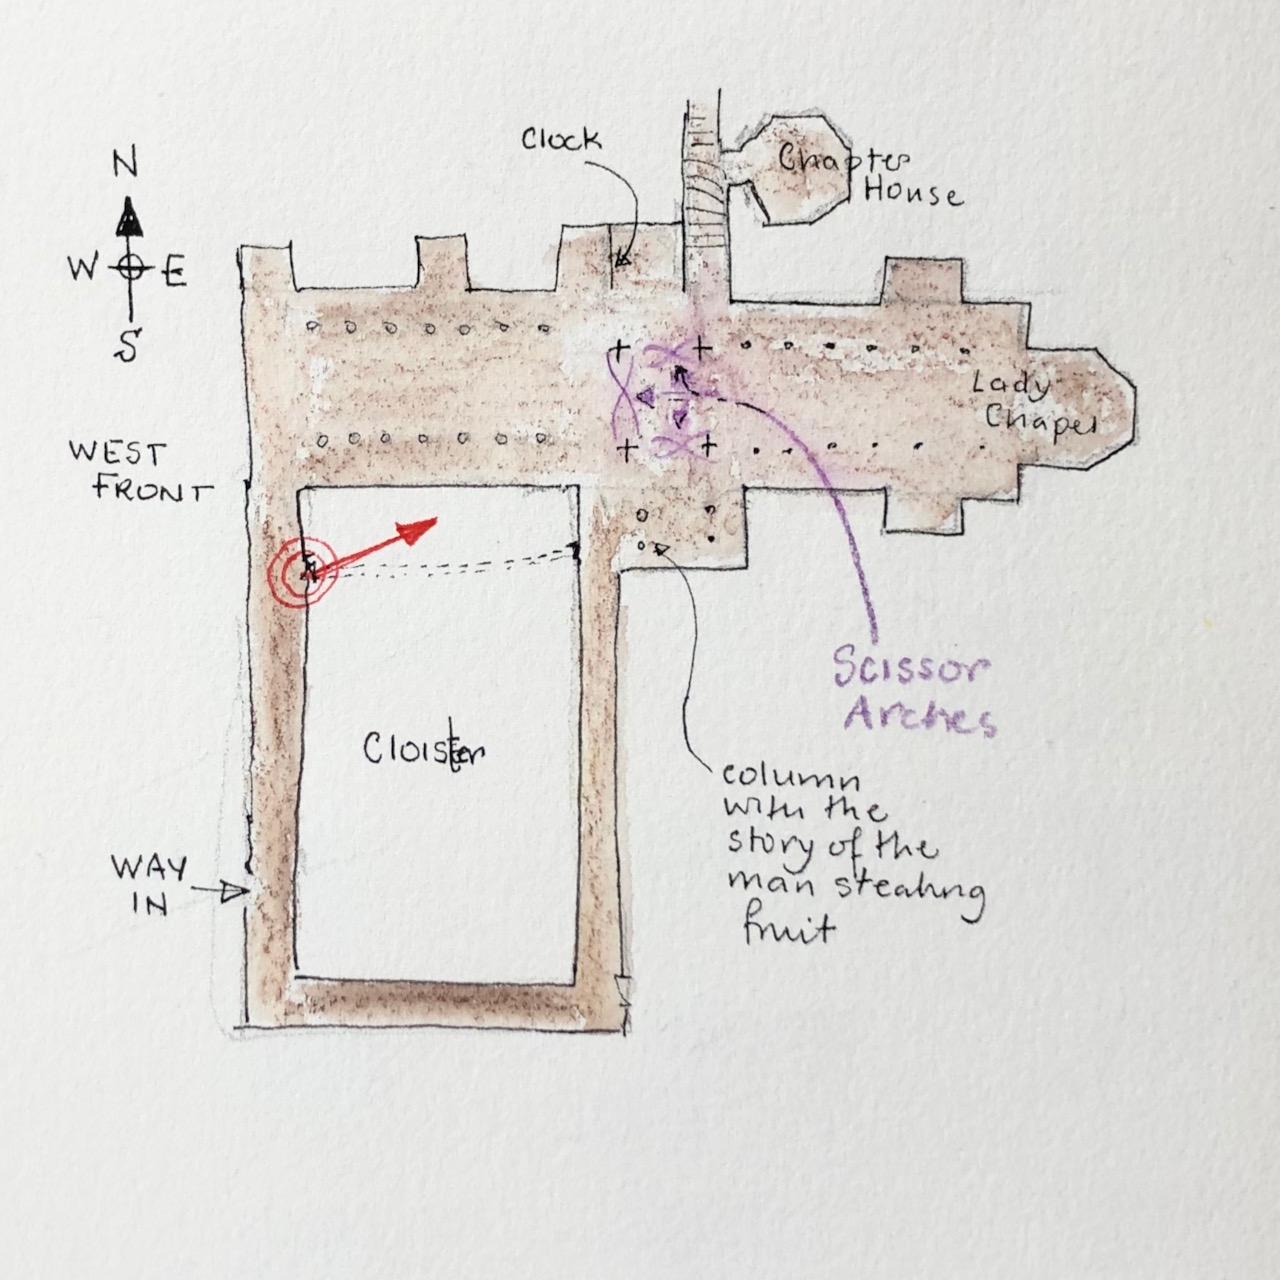 Clock
N
W E
S
Chapter
House
Lady
Chapel
WEST
FRONT
Cloister
Scissor
Arches
WAY
IN
column
with the
story of the
man stealing
fruit